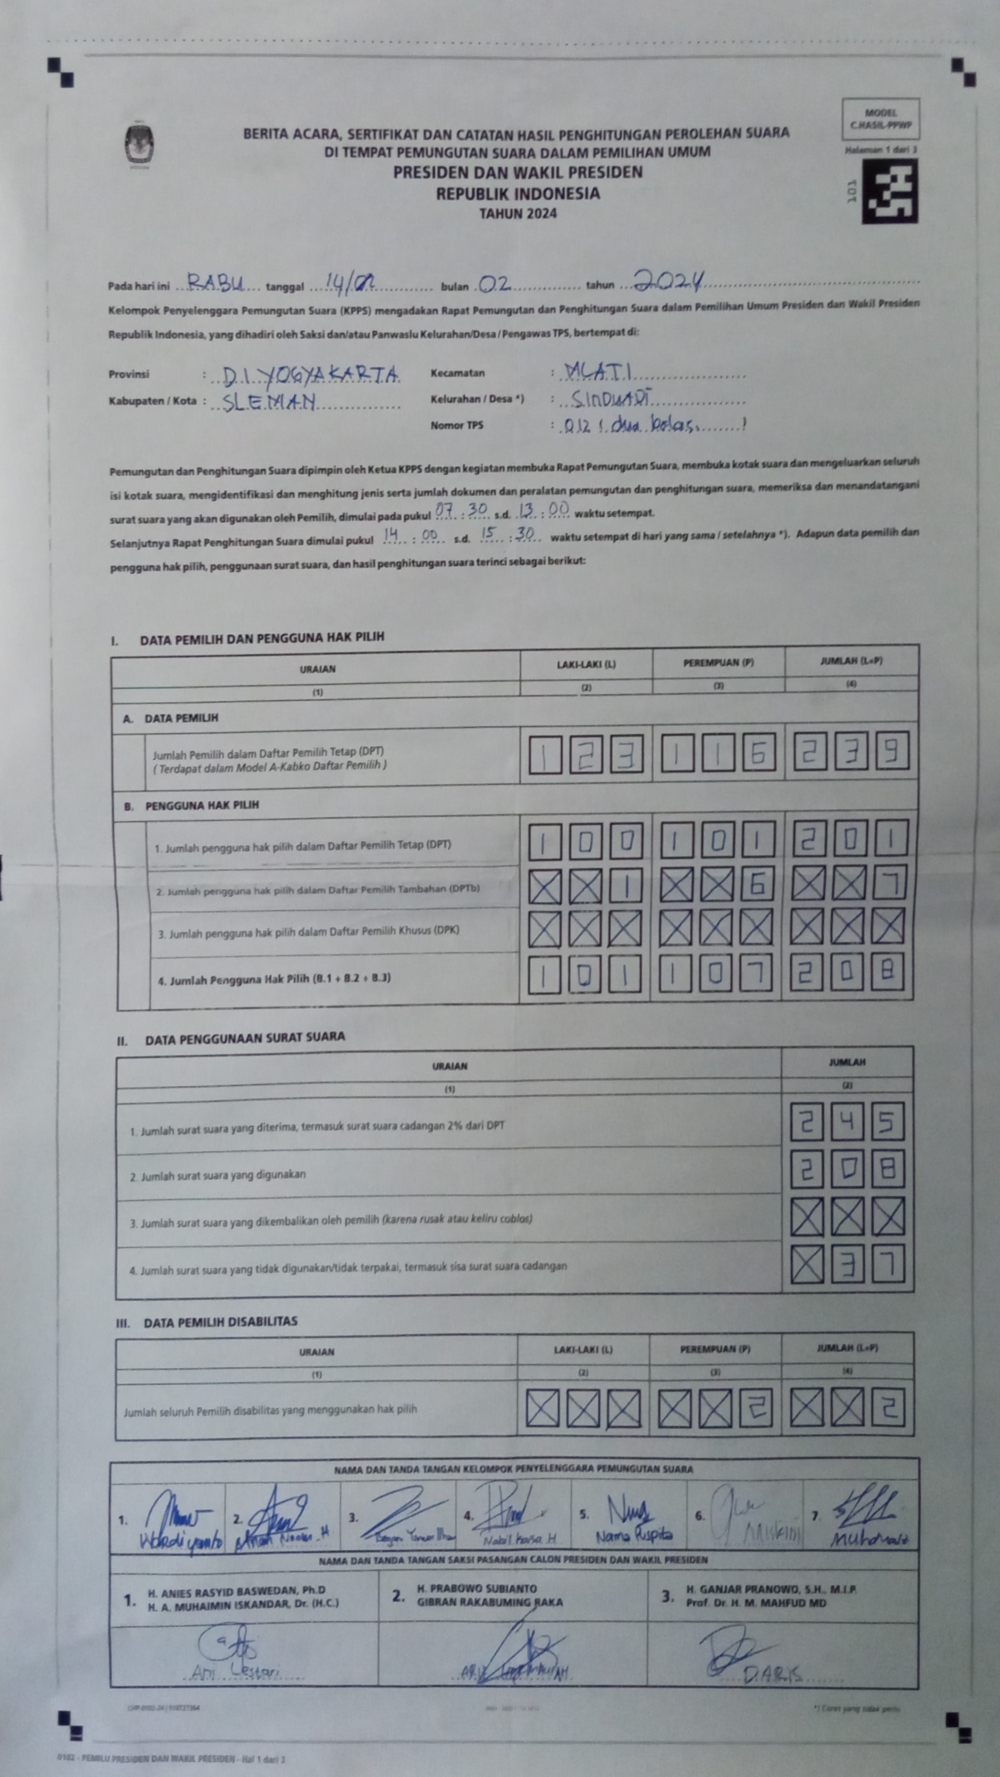 MODEL
C.HASIL-PPWP
Halaman 1 dari 3
101
BERITA ACARA, SERTIFIKAT DAN CATATAN HASIL PENGHITUNGAN PEROLEHAN SUARA
DI TEMPAT PEMUNGUTAN SUARA DALAM PEMILIHAN UMUM
PRESIDEN DAN WAKIL PRESIDEN
REPUBLIK INDONESIA
TAHUN 2024
Pada hari ini RABU tanggal 14/02 bulan 02 tahun 2024
Kelompok Penyelenggara Pemungutan Suara (KPPS) mengadakan Rapat Pemungutan dan Penghitungan Suara dalam Pemilihan Umum Presiden dan Wakil Presiden
Republik Indonesia, yang dihadiri oleh Saksi dan/atau Panwaslu Kelurahan/Desa/Pengawas TPS, bertempat di:
Provinsi : D.I. YOGYAKARTA Kecamatan : MLATI
Kabupaten / Kota : SLEMAN Kelurahan / Desa *) : SINDUADI
Nomor TPS : 012 ( dua belas )
Pemungutan dan Penghitungan Suara dipimpin oleh Ketua KPPS dengan kegiatan membuka Rapat Pemungutan Suara, membuka kotak suara dan mengeluarkan seluruh
isi kotak suara, mengidentifikasi dan menghitung jenis serta jumlah dokumen dan peralatan pemungutan dan penghitungan suara, memeriksa dan menandatangani
surat suara yang akan digunakan oleh Pemilih, dimulai pada pukul 07 : 30 s.d. 13 : 00 waktu setempat.
Selanjutnya Rapat Penghitungan Suara dimulai pukul 14 : 00 s.d. 15 : 30 waktu setempat di hari yang sama / setelahnya *). Adapun data pemilih dan
pengguna hak pilih, penggunaan surat suara, dan hasil penghitungan suara terinci sebagai berikut:
I. DATA PEMILIH DAN PENGGUNA HAK PILIH
URAIAN LAKI-LAKI (L) PEREMPUAN (P) JUMLAH (L+P)
(1) (2) (3) (4)
A. DATA PEMILIH
Jumlah Pemilih dalam Daftar Pemilih Tetap (DPT)
( Terdapat dalam Model A-Kabko Daftar Pemilih ) 1 2 3 1 1 6 2 3 9
B. PENGGUNA HAK PILIH
1. Jumlah pengguna hak pilih dalam Daftar Pemilih Tetap (DPT) 1 0 0 1 0 1 2 0 1
2. Jumlah pengguna hak pilih dalam Daftar Pemilih Tambahan (DPTb) X X 1 X X 6 X X 7
3. Jumlah pengguna hak pilih dalam Daftar Pemilih Khusus (DPK) X X X X X X X X X
4. Jumlah Pengguna Hak Pilih (B.1 + B.2 + B.3) 1 0 1 1 0 7 2 0 8
II. DATA PENGGUNAAN SURAT SUARA
URAIAN JUMLAH
(1) (2)
1. Jumlah surat suara yang diterima, termasuk surat suara cadangan 2% dari DPT 2 4 5
2. Jumlah surat suara yang digunakan 2 0 8
3. Jumlah surat suara yang dikembalikan oleh pemilih (karena rusak atau keliru coblos) X X X
4. Jumlah surat suara yang tidak digunakan/tidak terpakai, termasuk sisa surat suara cadangan X 3 7
III. DATA PEMILIH DISABILITAS
URAIAN LAKI-LAKI (L) PEREMPUAN (P) JUMLAH (L+P)
(1) (2) (3) (4)
Jumlah seluruh Pemilih disabilitas yang menggunakan hak pilih X X X X X 2 X X 2
NAMA DAN TANDA TANGAN KELOMPOK PENYELENGGARA PEMUNGUTAN SUARA
1. 2. 3. 4. 5. 6. 7.
Wardiyanto Nabil Puspita Miskini
NAMA DAN TANDA TANGAN SAKSI PASANGAN CALON PRESIDEN DAN WAKIL PRESIDEN
1. H. ANIES RASYID BASWEDAN, Ph.D
H. A. MUHAIMIN ISKANDAR, Dr. (H.C.)
2. H. PRABOWO SUBIANTO
GIBRAN RAKABUMING RAKA
3. H. GANJAR PRANOWO, S.H., M.I.P.
Prof. Dr. H. M. MAHFUD MD
Ani Lestari DARIS
*) Coret yang tidak perlu
0102 - PEMILU PRESIDEN DAN WAKIL PRESIDEN - Hal 1 dari 3